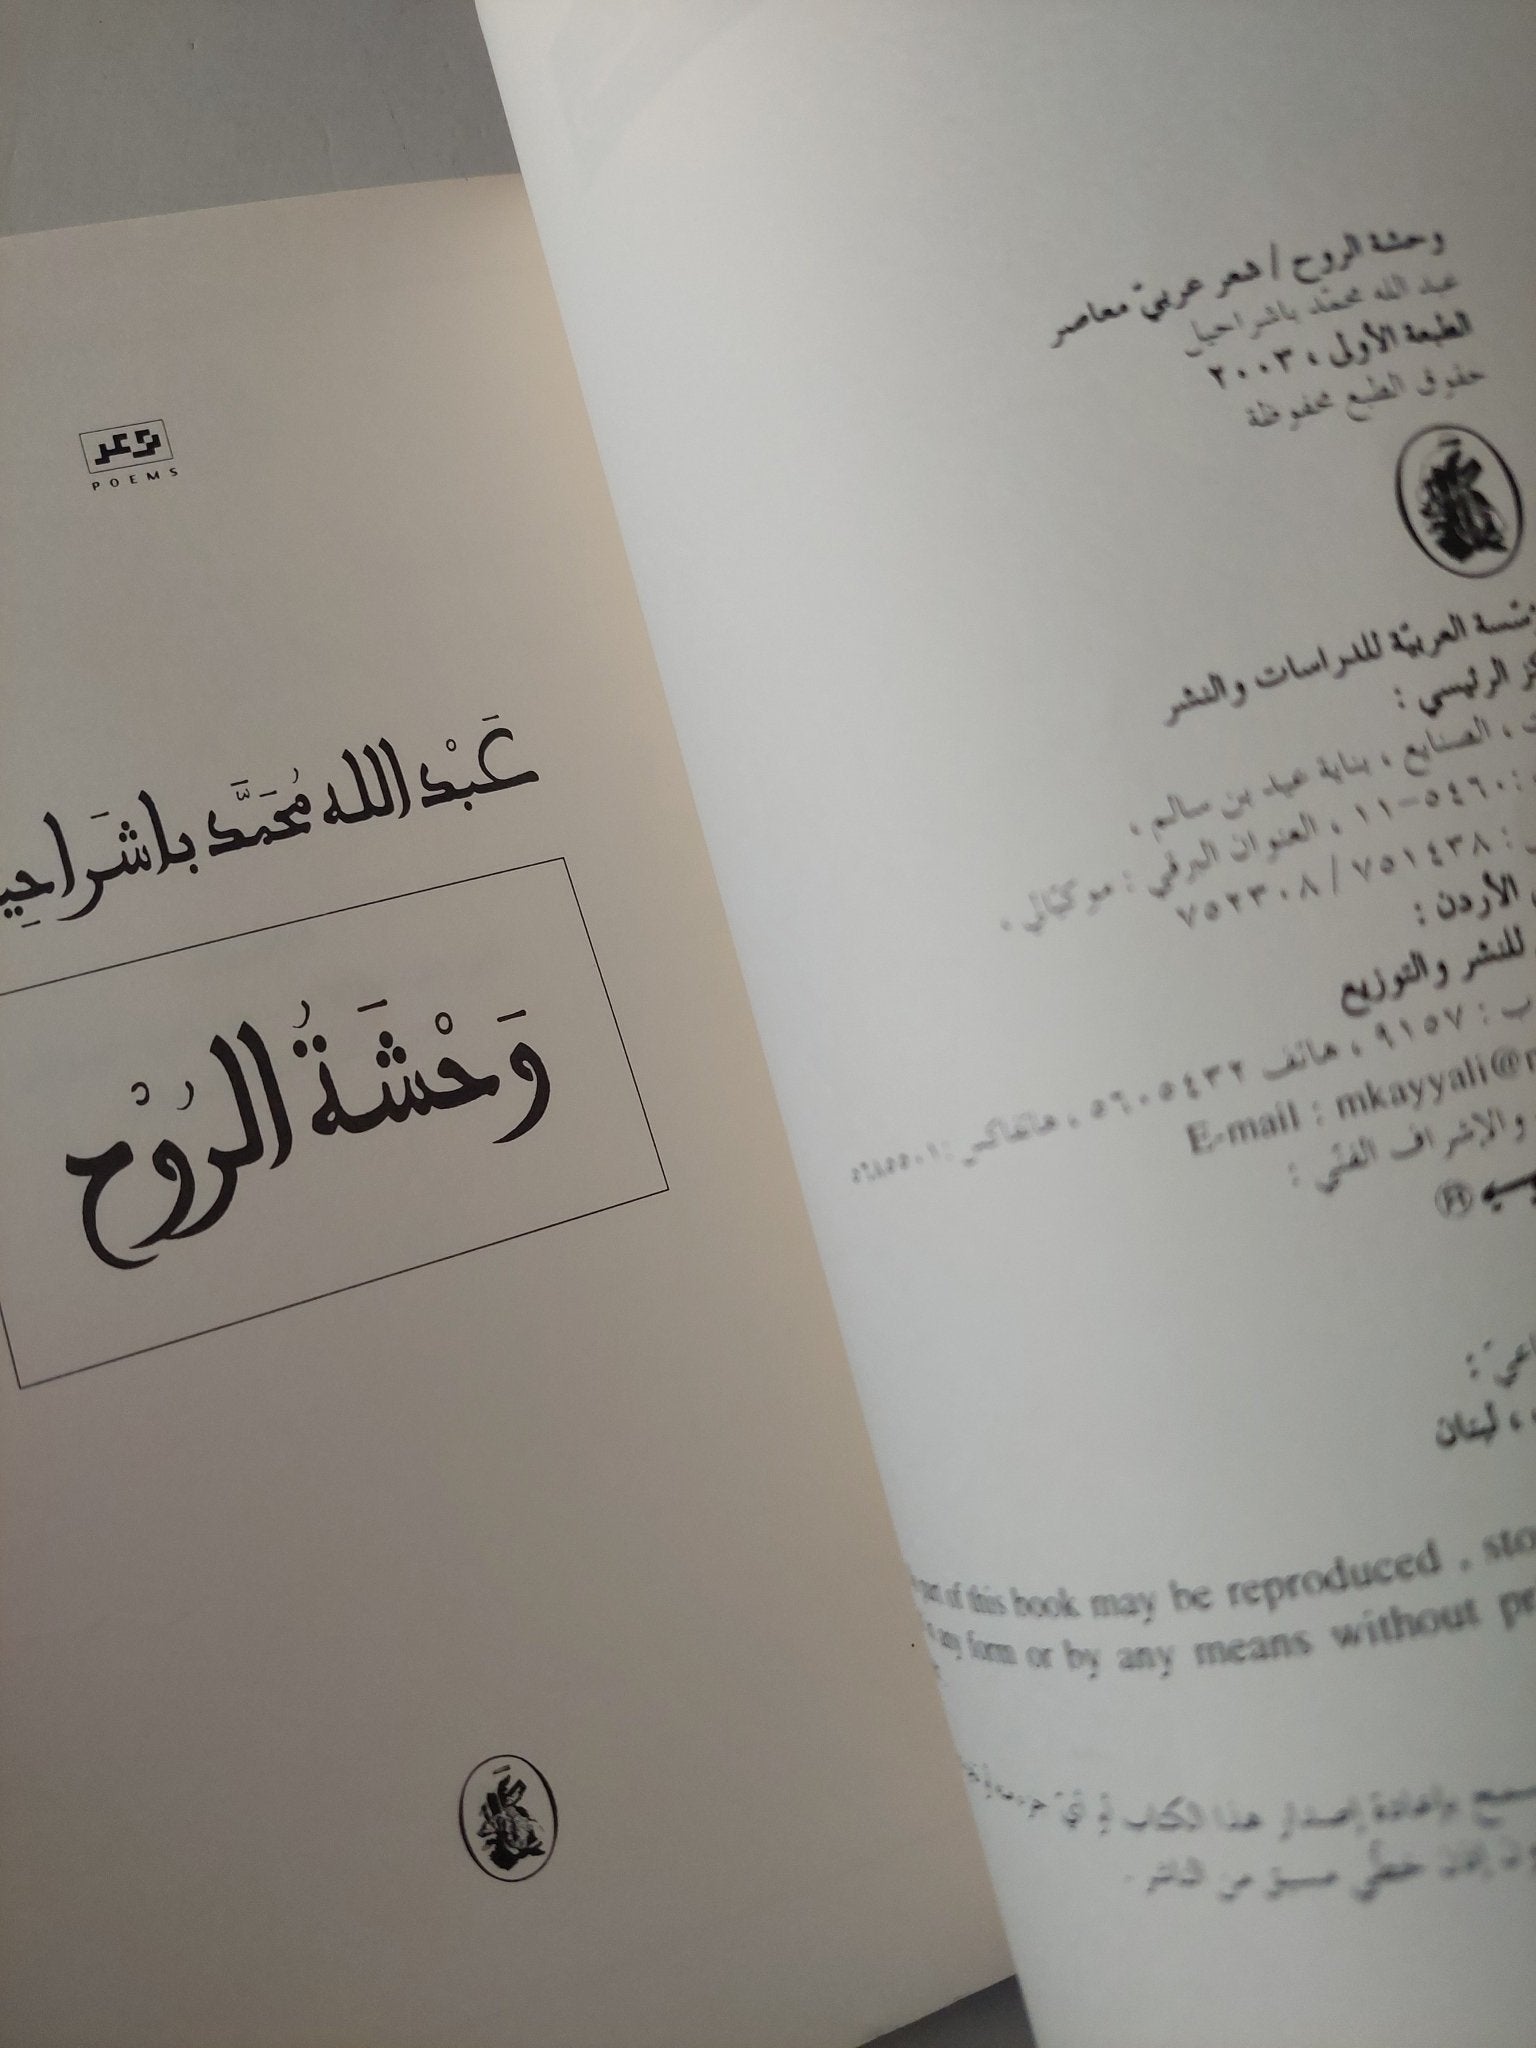 شعر
POEMS
عَبْد الله مُحَمَّد باشَراحِيـ
وَحْشَةُ الرُوْح
وحشة الروح / شعر عربيّ معاصر
عبد الله محمّد باشراحيل
الطبعة الأولى ، ٢٠٠٣
حقوق الطبع محفوظة
ـسّسة العربيّة للدراسات والنشر
ـكز الرئيسي :
، الصنايع ، بناية عيد بن سالم ،
: ٥٤٦٠-١١ ، العنوان البرقي : موكيّالي ،
: ٧٥١٤٣٨ / ٧٥٢٣٠٨
الأردن :
للنشر والتوزيع
ب : ٩١٥٧ ، هاتف ٥٦٠٥٤٣٢ ، هاتفاكس : ٥٦٨٥٥٠١
E-mail : mkayyali@n
والإشراف الفنّي :
ـاعيّ :
، لبنان
part of this book may be reproduced , sto
any form or by any means without pr
ـسمح بإعادة إصدار هذا الكتاب أو أيّ جزء منه
إذن خطّي مسبق من الناشر .